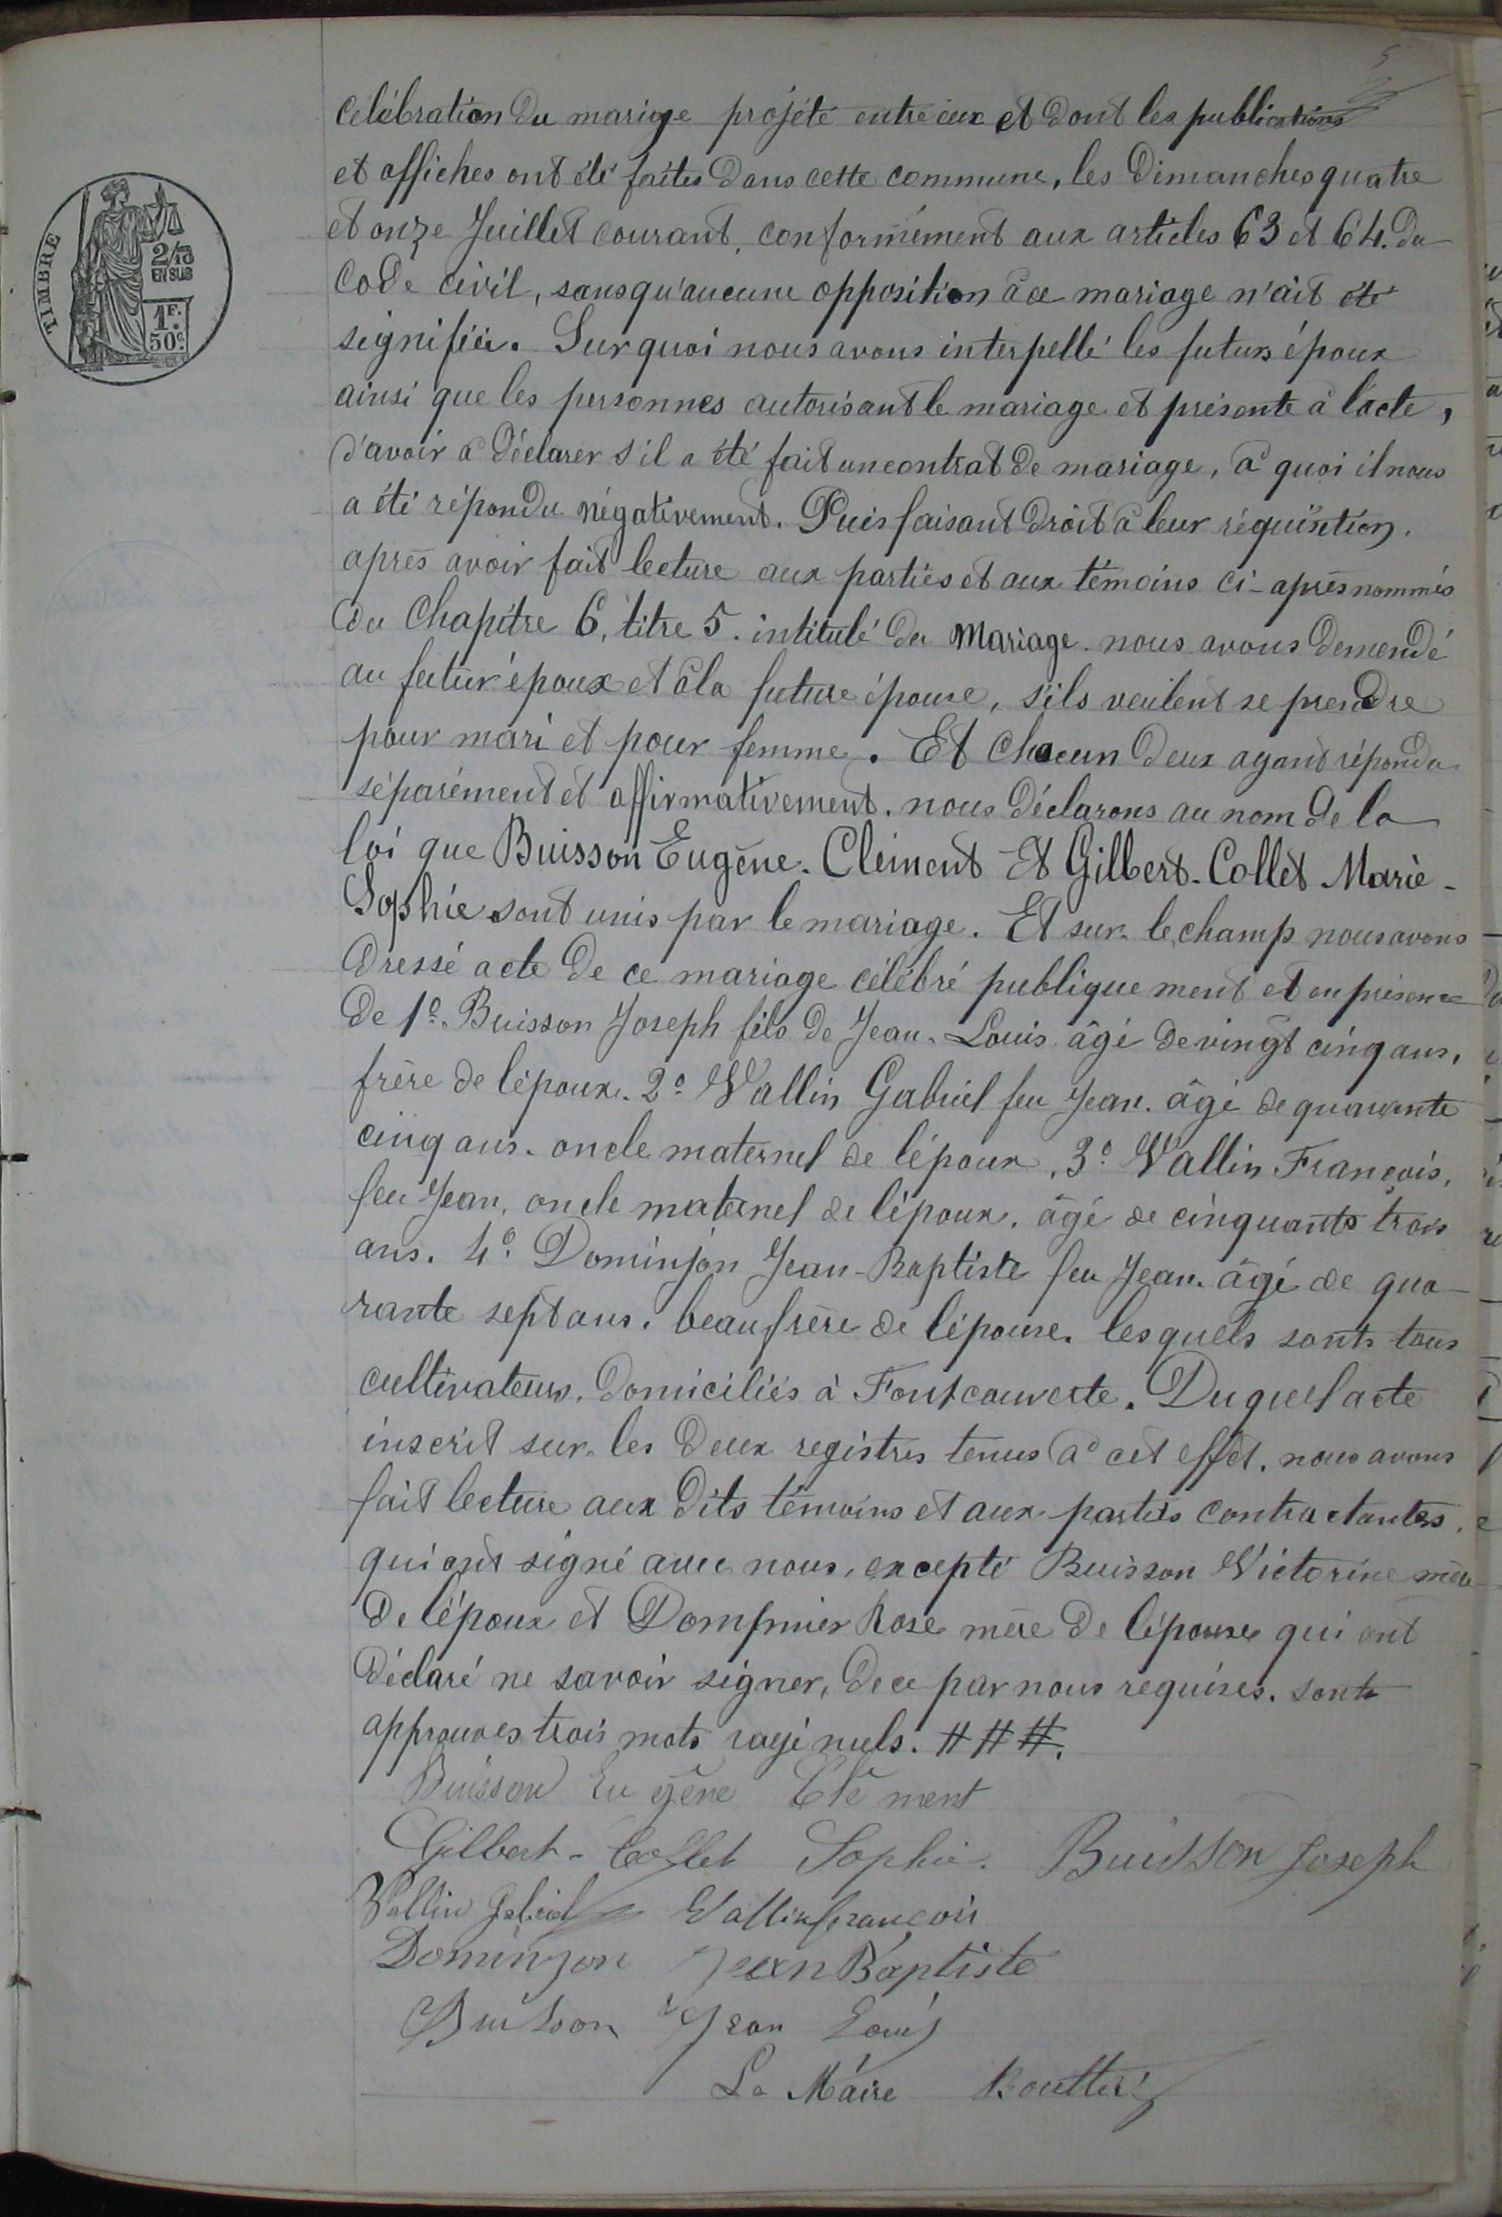 5
célébration du mariage projété entre eux et dont les publications
et affiches ont été faites dans cette commune, les Dimanches quatre
et onze Juillet courant, conformément aux articles 63 et 64. du
Code civil, sans qu'aucune opposition à ce mariage n'ait été
signifiée. Sur quoi nous avons interpellé les futurs époux
ainsi que les personnes autorisant le mariage et présente à l'acte,
d'avoir à déclarer s'il a été fait un contrat de mariage, à quoi il nous
a été répondu négativement. Puis faisant droit à leur réquisition.
après avoir fait lecture aux parties et aux témoins ci-après nommés
du Chapitre 6, titre 5. intitulé du Mariage. nous avons demendé
au futur époux et à la future épouse, s'ils veulent se prendre
pour mari et pour femme. Et chacun deux ayant répondu
séparément et affirmativement. nous déclarons au nom de la
loi que Buisson Eugène. Clément Et Gilbert-Collet Marie-
Sophie sont unis par le mariage. Et sur le champ nous avons
dressé acte de ce mariage célébré publiquement et en présence
de 1º. Buisson Joseph fils de Jean-Louis âgé de vingt cinq ans,
frère de l'époux. 2º Vallin Gabriel feu Jean. âgé de quarante
cinq ans. oncle maternel de l'époux, 3º Vallin François,
feu Jean, oncle maternel de l'époux. âgé de cinquante trois
ans. 4º. Dominjon Jean-Baptiste feu Jean. âgé de qua-
rante sept ans. beau frère de l'épouse. lesquels sonts tous
cultivateurs. domiciliés à Fontcouverte. Duquel acte
inscrit sur les deux registres tenus à cet effet. nous avons
fait lecture aux dits témoins et aux parties contractantes.
qui ont signé avec nous, excepté Buisson Victorine mère
de l'époux et Dompnier Rose mère de l'épouse qui ont
déclaré ne savoir signer, de ce par nous requises. sont
approuvés trois mots rayé nuls. # # #.
Buisson Eugène Clément
Gilbert-Collet Sophie. Buisson Joseph
Vallin Gabriel Vallin françois
Dominjon Jean Baptiste
Buisson Jean Louis
Le Maire
TIMBRE
2/10
EN SUS
1F.
50c.